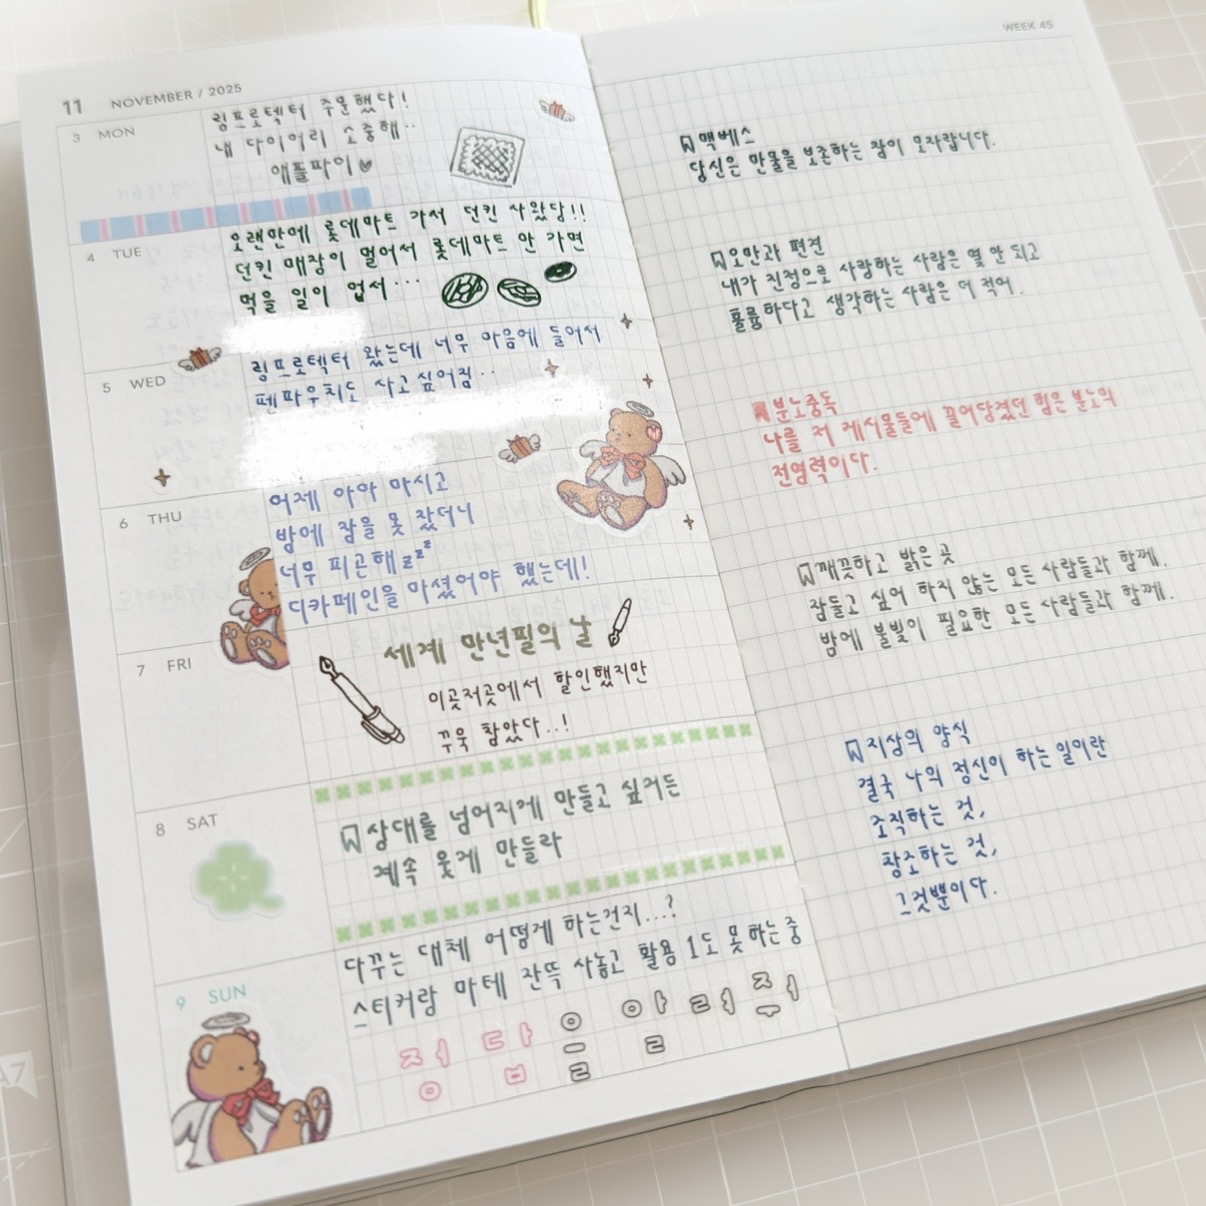 11 NOVEMBER / 2025
3 MON
링프로텍터 주문했다!
내 다이어리 소중해..
애플파이
4 TUE
오랜만에 롯데마트 가서 던킨 사왔당!!
던킨 매장이 멀어서 롯데마트 안 가면
먹을 일이 없서...
5 WED
링프로텍터 왔는데 너무 마음에 들어서
펜파우치도 사고싶어짐..
6 THU
어제 아아 마시고
밤에 잠을 못 잤더니
너무 피곤해zzz
디카페인을 마셨어야 했는데!
7 FRI
세계 만년필의 날
이곳저곳에서 할인했지만
꾸욱 참았다..!
8 SAT
상대를 넘어지게 만들고 싶거든
계속 웃게 만들라
9 SUN
다꾸는 대체 어떻게 하는건지...?
스티커랑 마테 잔뜩 사놓고 활용 1도 못하는중
정답을 알려줘
WEEK 45
맥베스
당신은 만물을 보존하는 잠이 모자랍니다.
오만과 편견
내가 진정으로 사랑하는 사람은 몇 안 되고
훌륭하다고 생각하는 사람은 더 적어.
분노중독
나를 저 게시물들에 끌어당겼던 힘은 분노의
전염력이다.
깨끗하고 밝은 곳
잠들고 싶어 하지 않는 모든 사람들과 함께.
밤에 불빛이 필요한 모든 사람들과 함께.
지상의 양식
결국 나의 정신이 하는 일이란
조직하는 것,
창조하는 것,
그것뿐이다.
A7